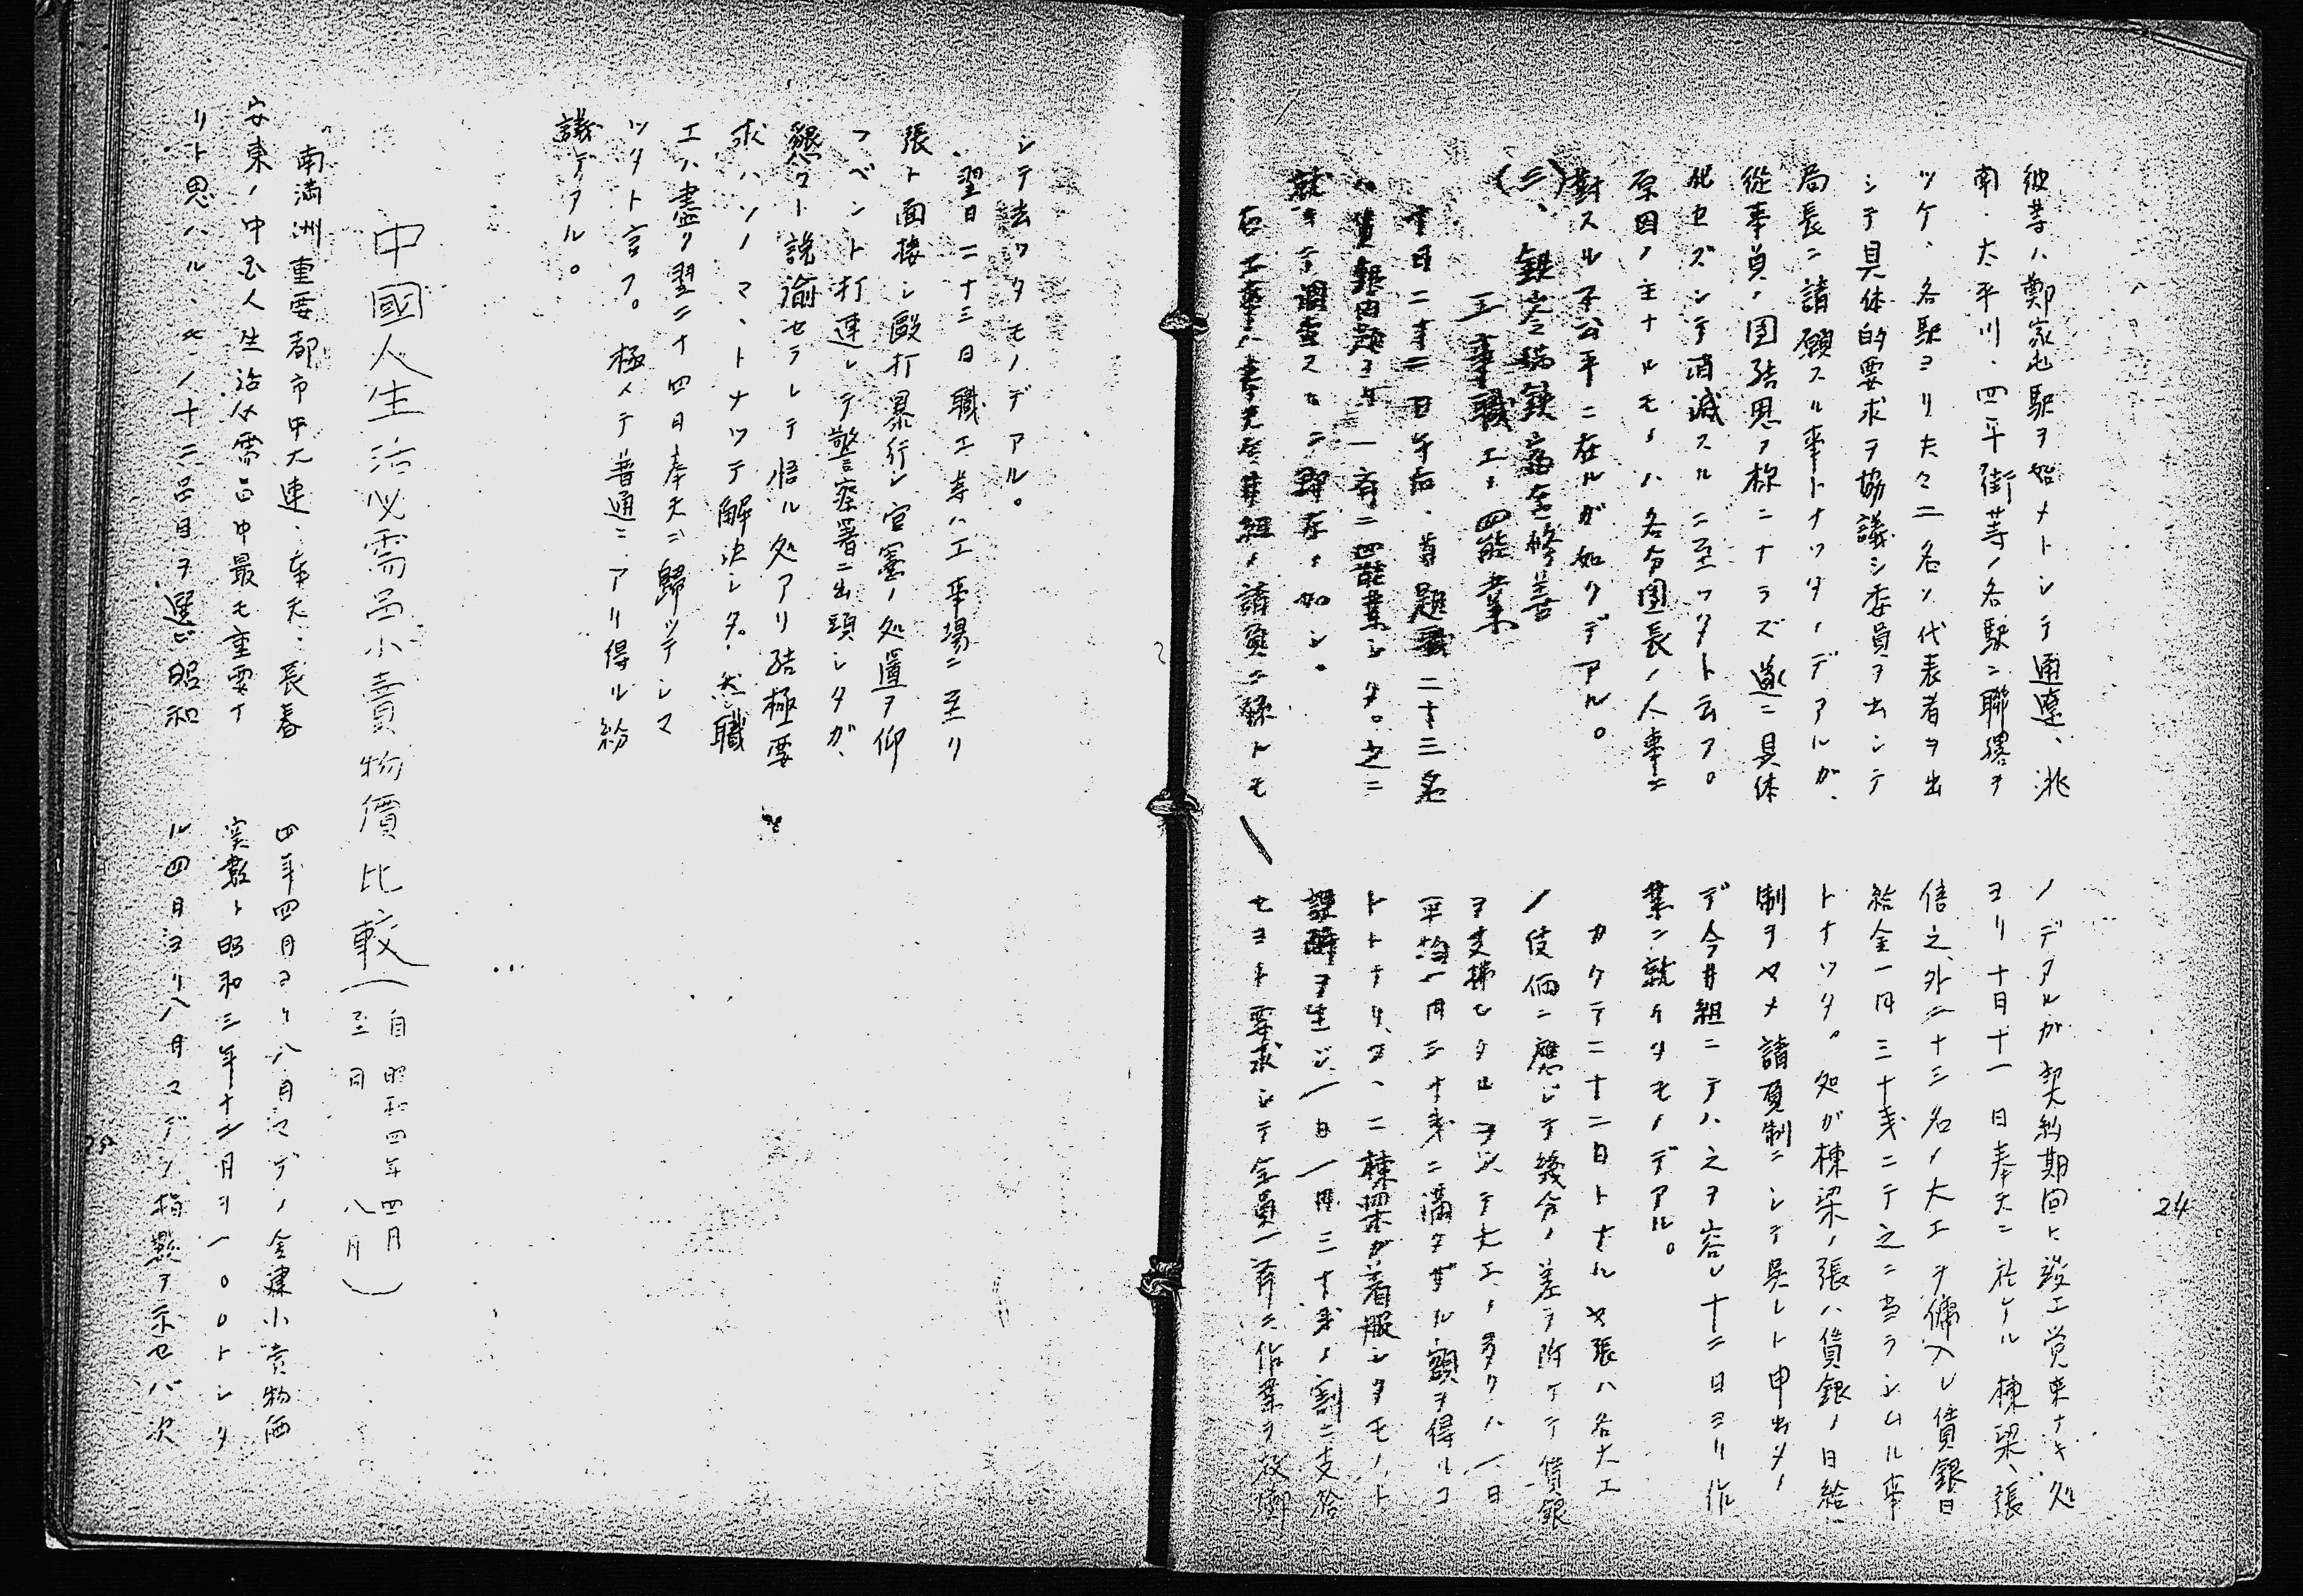 彼等ハ鄭家屯駅ヲ始メトシテ通遼、洮
南、太平川、四平街等ノ各駅ニ聯絡ヲ
ツケ、各駅ヨリ夫々二名ツ代表者ヲ出
シテ具体的要求ヲ協議シ委員ヲ出シテ
局長ニ請願スル事トナツタノデアルガ、
従事員ノ団結思フ様ニナラズ遂ニ具体
化セズシテ消滅スルニ至ツタト云フ。
原因ノ主ナルモノハ各分団長ノ人事ニ
對スル不公平ニ在ルガ如クデアル。
(三)、銀差瑞鉄 修善
工事職工ノ四能業
十月二十二日午后、首題職二十三名
ハ賃銀問題ヨリ一斉ニ罷業シタ。之ニ
就キテ調査スルニ即左ノ如シ。
右工事ハ 井組ノ請負ニ係ルモ
ノデアルガ契約期間ニ竣工覚束ナキ処
ヨリ十月十一日奉天ニ於ケル棟梁、張
信之外二十三名ノ大工ヲ傭入レ賃銀日
給金一円三十銭ニテ之ニ当ラシムル事
トナツタ。処ガ棟梁ノ張ハ賃銀ノ日給
制ヲヤメ請負制ニシテ呉レト申出タノ
デ今井組ニテハ之ヲ容レ十二日ヨリ作
業ニ就ケタモノデアル。
カクテ二十二日トナルヤ張ハ各大工
ノ伎倆ニ應ジテ幾分ノ差ヲ附ケテ賃銀
ヲ支拂ヒタルヲ以テ大工ノ多クハ一日
平均一円三十銭ニ満タザル額ヲ得ルコ
トトナリ、又、二棟梁ガ着服シタモノト
誤解ヲ生ジ一日一円三十銭ノ割ニ支給
セヨト要求シテ全員一斉ニ作業ヲ放擲
シテ去ツタモノデアル。
翌日二十三日職工等ハ工事場ニ至リ
張ト面接シ毆打暴行シ官憲ノ処置ヲ仰
フベント打連レテ警察署ニ出頭シタガ、
懇コト説諭セラレテ悟ル処アリ結極要
求ハソノマヽトナツテ解決シタ。然職
工ハ盡ク翌二十四日奉天ニ歸ツテシマ
ツタト言フ。極メテ普通ニアリ得ル紛
議デアル。
中國人生活必需品小賣物價比較(自昭和四年四月
至同八月)
南満洲重要都市中大連、奉天、長春
安東ノ中国人生活必需品中最モ重要ナ
リト思ハル、モノ十六品目ヲ選ビ昭和
四年四月ヨリ八月マデノ金建小売物価
実数ト昭和三年十二月ヲ一〇〇トシタ
ル四月ヨリ八月マデノ指数ヲ示セバ次
24